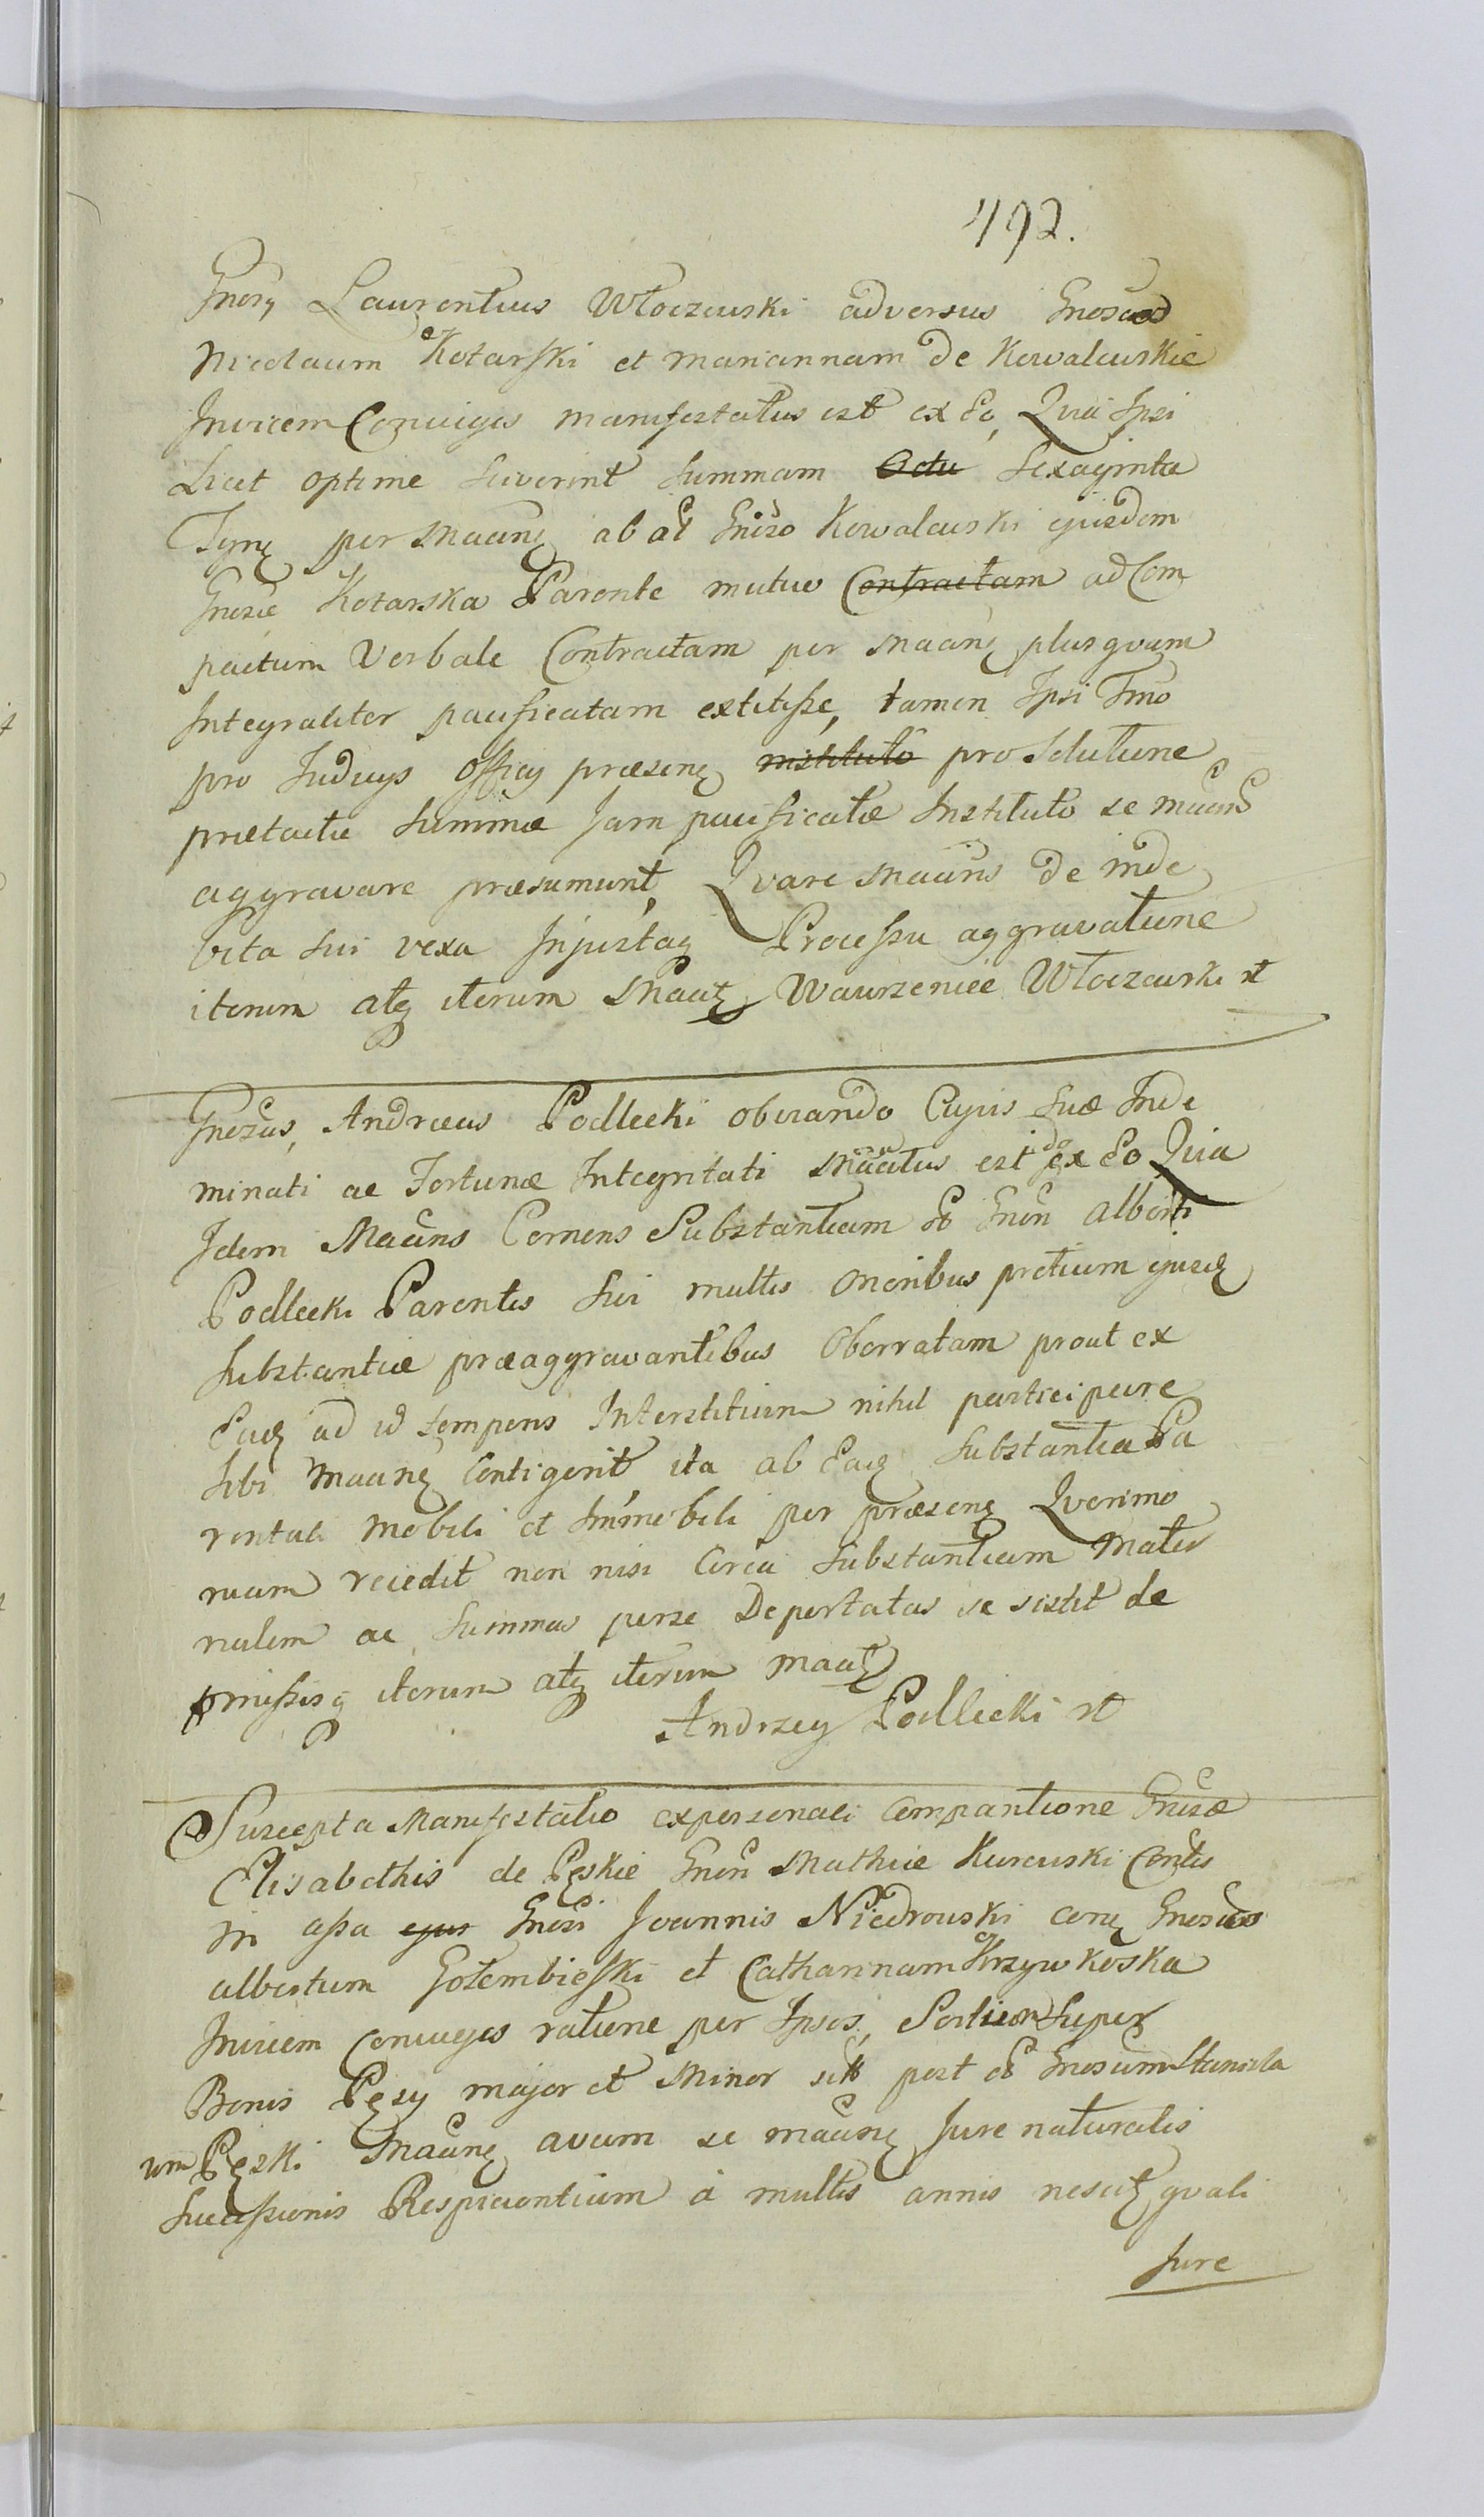 492.
Gnosz Laurentius Włoczewski adversus Gnosos
Nicolaum Kotarski et Mariannam de Kowalewskie
Invicem Conjuges manifestatus est ex Eo, Quia Ipsi
Licet optime sciverint summam Octu Sexaginta
Tynf per Maanz ab Gnoso Kowalewski ejusdem
Gnose Kotarska Parente mutuo Contractam ad Com
pactum Verbale Contractam per Maanz plusquam
Integraliter pacificatam extitisse, tamen Ipsi Tmo
pro Iudicijs officij præsenz instituto pro Solutione
prætactæ Summæ Jam pacificatæ Instituto se maans
aggravare præsumunt, Quare Maans de inde
bita sui vexa Injustaq Processu aggravatione
iterum atq iterum Maatz Wawrzeniec Włoczewski
Gnosus, Andreas Podlecki obviando Cujvis suæ Inde
minati ac Fortunæ Integritati Maatus est ido ex Eo Quia
Idem Maans Cernens Substantiam Gnosi Alberti
Podlecki Parentis sui multis Oneribus pretium ejusq
Substantiæ præaggravantibus Oberratam prout ex
Eaq ad id temporis Interstitium nihil participare
sibi Maanz Contigerit, ita ab Eaq Substantia Pa
rentali Mobili et Immobili per præsenz Querimo
niam recedit non nisi Circa Substantiam Mater
nalem ac Summas per se Deportatas se sistit de
pmissisq iterum atq iterum maatz
Andrzey Podlecki
Suscepta Manifestatio ex personali Comparitione Gnosæ
Elisabethis de Pęskie Gnosi Mathiæ Kurowski Contis
in assa ejus Gnosi Joannis Niedrowski conz Gnosos
albertum Gołembieski et Catharinam Krzywkoska
Invicem Conjuges ratione per Ipsos, Sortium super
Bonis Pęsy major et Minor post Gnosum Stanisla
um Pęski Maanz avum se maanz Jure naturalis
Successionis Respicientium à multis annis nescitz quali
Jure